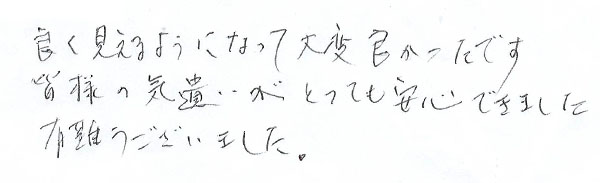 良く見えるようになって大変良かったです
皆様の気遣いがとっても安心できました
有難うございました。